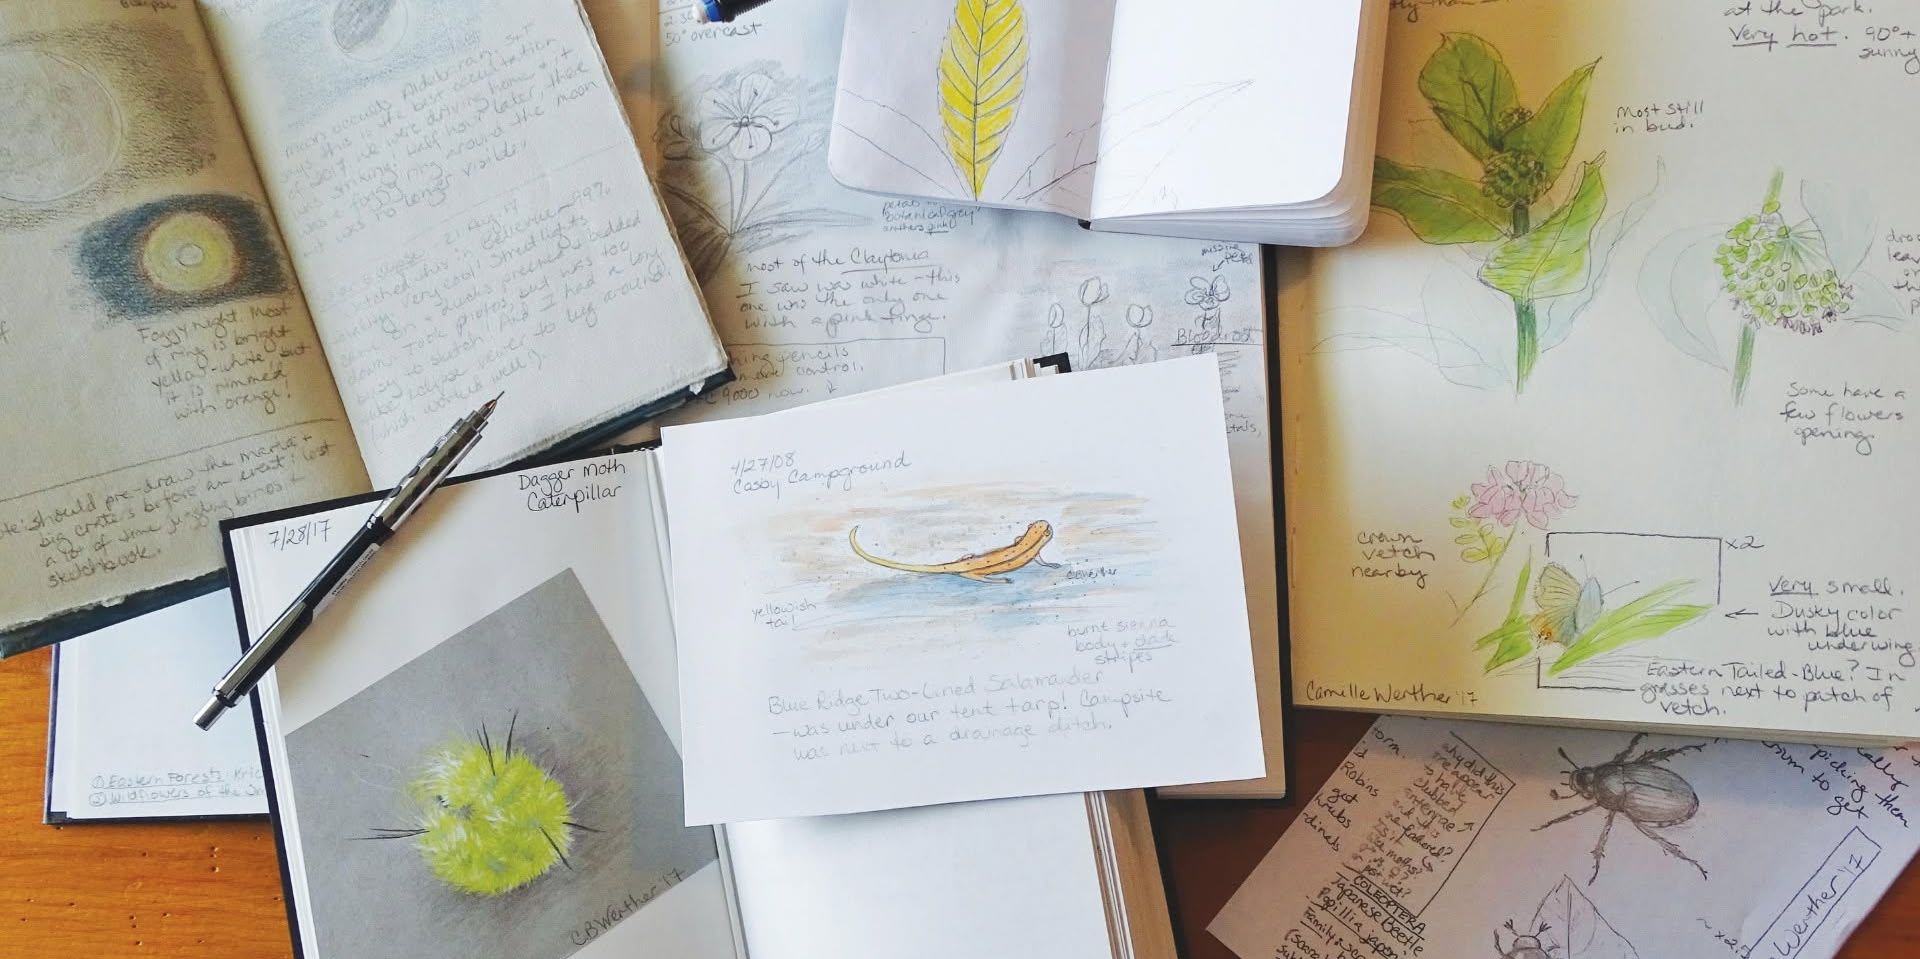 Eclipse
moon occults Aldebaran. S&T
says this is the best occultation
of 2017. We were driving home & it
was striking! Half hour later, there
was a foggy ring around the moon
but was no longer visible.
21 Aug 17
Bellevue – 99%
watched this in
Very cool! Streetlights
came on & ducks preened & bedded
down. Took photos but was too
busy to sketch (And I had a long
solar eclipse viewer to lug around.
(which worked well!)
Foggy night. Most
of ring is bright
yellow-white but
it is rimmed
with orange!
Note: should pre-draw the maria +
big craters before an event; lost
a lot of time juggling binos +
sketchbook.
50° overcast
petals
"botanical grey"
anthers pink
most of the Claytonia
I saw was white – this
one was the only one
with a pink tinge.
pencils
more control.
9000 now.
missing
petal
Bloodroot
at the park.
Very hot. 90°+
sunny
Most still
in bud.
Some have a
few flowers
opening.
crown
vetch
nearby
x2
Very small.
Dusky color
with blue
underwing
Eastern Tailed-Blue? In
grasses next to patch of
vetch.
Camille Werther '17
7/28/17
Dagger Moth
Caterpillar
CBWerther '17
① Eastern Forests, Kric
② Wildflowers of the Sm
4/27/08
Cosby Campground
CBWerther
yellowish
tail
burnt sienna
body + dark
stripes
Blue Ridge Two-Lined Salamander
– was under our tent tarp! Campsite
was next to a drainage ditch.
form.
Robins
got
shrubs
why did this
one appear
to have
clubbed
antennae
and this
one feathered?
Is it
like moths?
COLEOPTERA
Japanese Beetle
Popillia japon
Family:
picking them
to get
~ x2.5
Werther '17